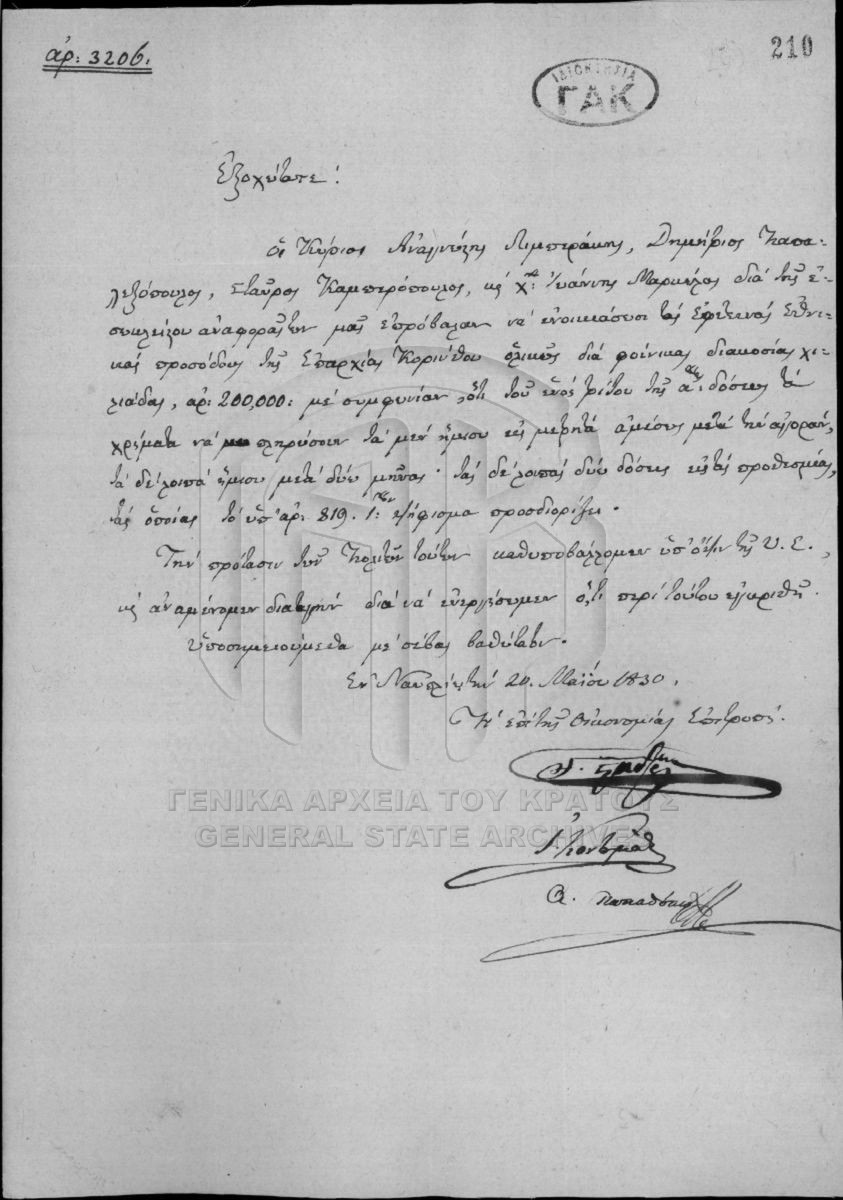 ἀρ: 3206.
210
ΙΔΙΟΚΤΗΣΙΑ
ΓΑΚ
Ἐξοχώτατε!
Οἱ Κύριοι Ἀναγνώστης Λιμπεράκης, Δημήτριος Παπα-
λεξόπουλος, Σταῦρος Καμπερόπουλος, καὶ Χ: Ἰωάννης Μαρκέλος διὰ τῆς ἐ-
σωκλείστου ἀναφορᾶς των μᾶς ἐπρόβαλαν νὰ ἐνοικιάσωσι τὰς ἐφετεινὰς ἐθνι-
κὰς προσόδους τῆς Ἐπαρχίας Κορίνθου ὁλικῶς διὰ φοίνικας διακοσίας χι-
λιάδας, ἀρ: 200,000: μὲ συμφωνίαν, ὅτι τοῦ ἑνὸς τρίτου τῆς α: δόσεως τὰ
χρήματα νὰ πληρώσουν τὰ μὲν ἥμισυ εἰς μετρητὰ ἀμέσως μετὰ τὴν ἀγοράν,
τὰ δὲ λοιπὰ ἥμισυ μετὰ δύω μῆνας· τὰς δὲ λοιπὰς δύω δόσεις εἰς τὰς προθεσμίας,
τὰς ὁποίας τὸ ὑπ' ἀρ: 819. ψήφισμα προσδιορίζει.
Τὴν πρότασιν τῶν πολιτῶν τούτων καθυποβάλλομεν ὑπ' ὄψιν τῆς Υ. Ε.,
καὶ ἀναμένομεν διαταγὴν διὰ νὰ ἐνεργήσωμεν ὅ,τι περὶ τούτου ἐγκριθῇ.
Ὑποσημειούμεθα μὲ σέβας βαθύτατον.
Ἐν Ναυπλίῳ τὴν 20. Μαΐου 1830.
Ἡ ἐπὶ τῆς Οἰκονομίας Ἐπιτροπή.
ΓΕΝΙΚΑ ΑΡΧΕΙΑ ΤΟΥ ΚΡΑΤΟΥΣ
GENERAL STATE ARCHIVES